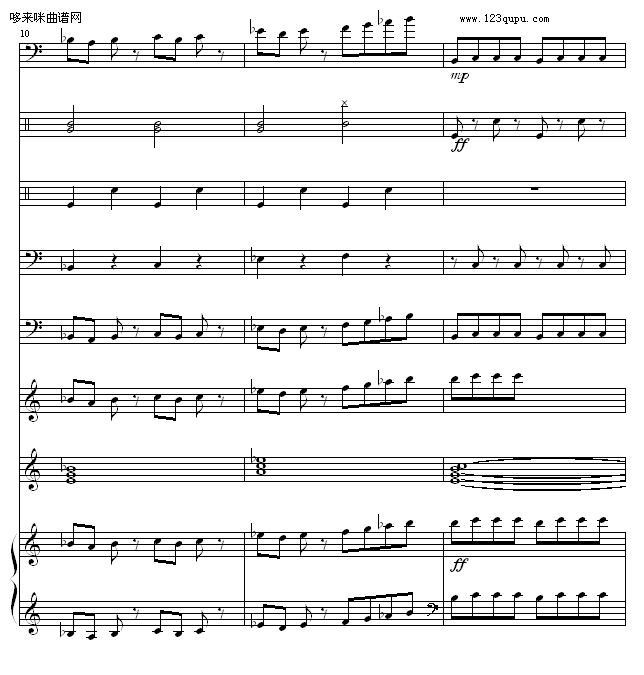 哆来咪曲谱网
www.123qupu.com
10
mp
ff
ff